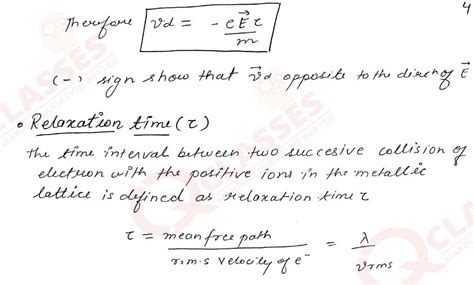 4
Therefore vd = - eE⃗τ / m
(-) sign show that v⃗d opposite to the direcn of E⃗
• Relaxation time (τ)
The time interval between two succesive collision of
electron with the positive ions in the metallic
lattice is defined as relaxation time τ
τ = mean free path / r.m.s velocity of e⁻ = λ / vrms
CLASSES
Q CLASSES